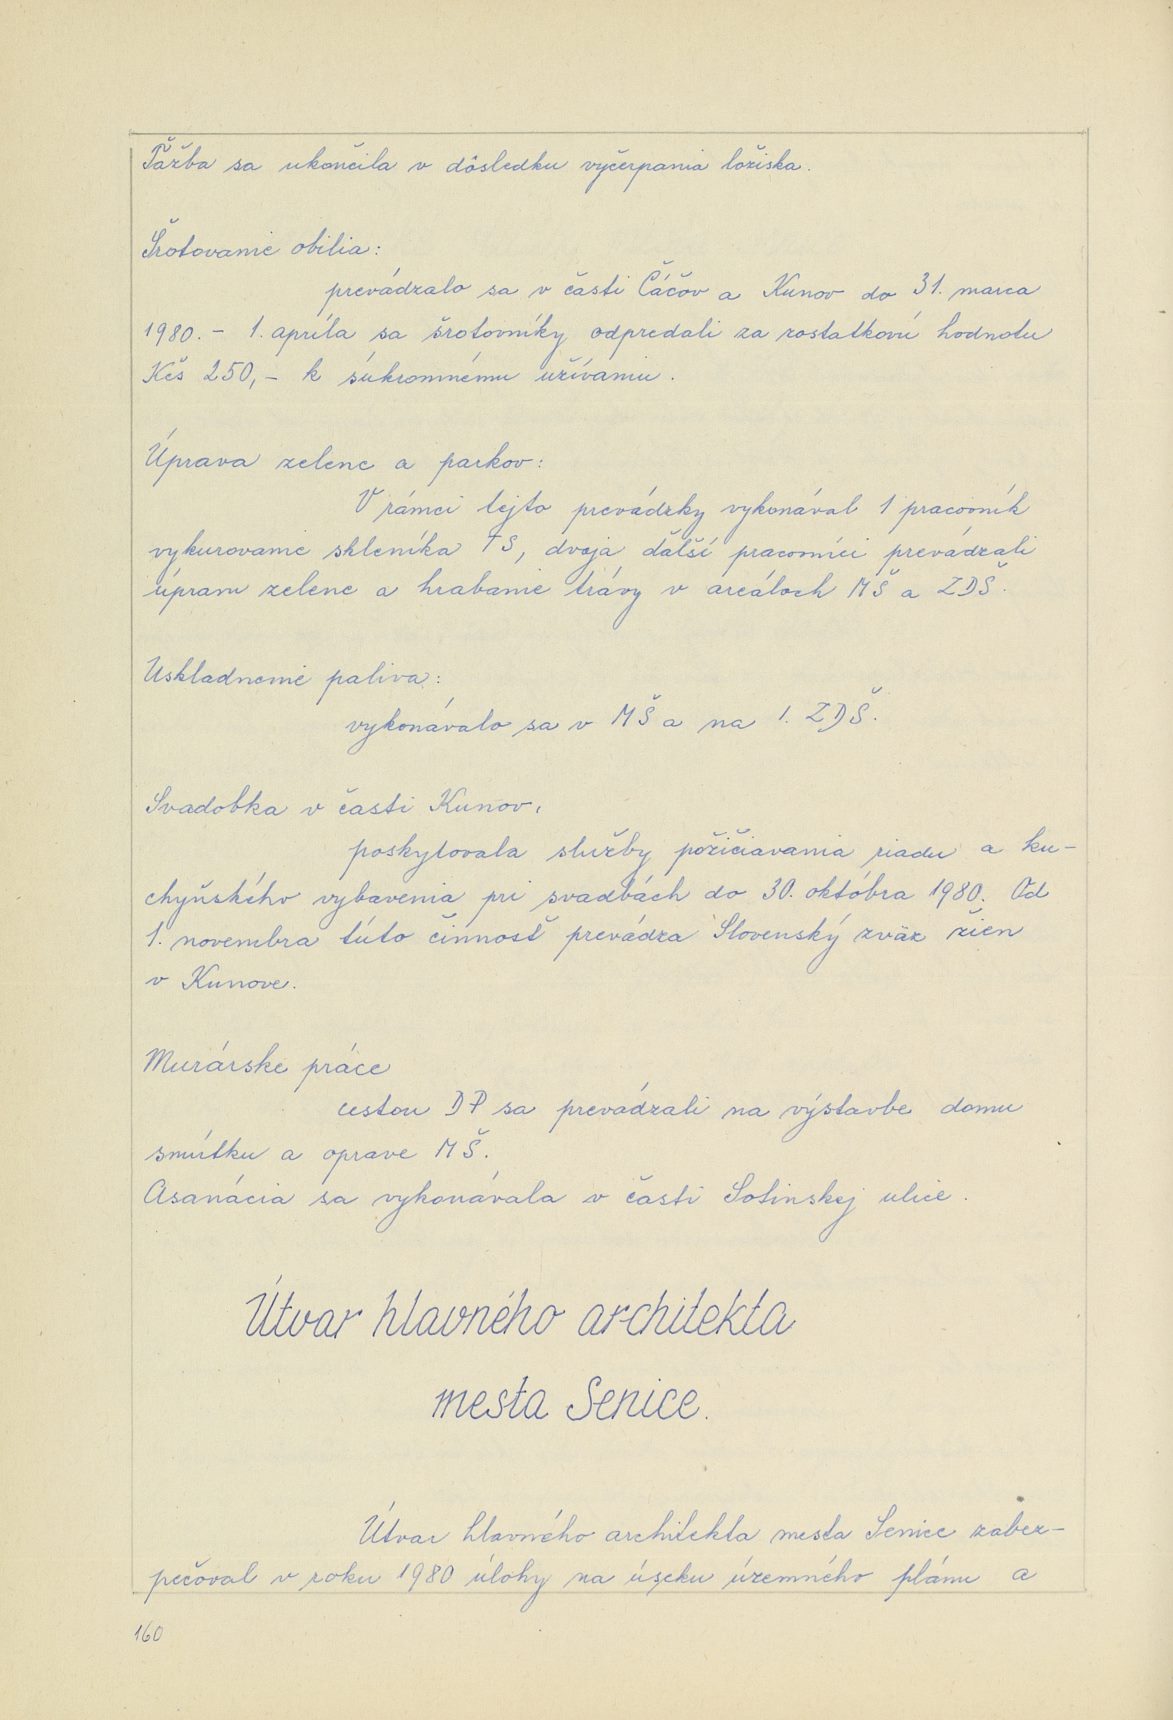 Ťažba sa ukončila v dôsledku vyčerpania ložiska.
Šrotovanie obilia:
prevádzalo sa v časti Čáčov a Kunov do 31. marca
1980. - 1. apríla sa šrotovníky odpredali za zostatkovú hodnotu
Kčs 250,- k súkromnému užívaniu.
Úprava zelene a parkov:
V rámci tejto prevádzky vykonával 1 pracovník
vykurovanie skleníka TS, dvaja ďalší pracovníci prevádzali
úpravu zelene a hrabanie trávy v areáloch MŠ a ZDŠ.
Uskladnenie paliva:
vykonávalo sa v MŠ a na 1. ZDŠ.
Svadobka v časti Kunov,
poskytovala služby požičiavania riadu a ku-
chyňského vybavenia pri svadbách do 30. októbra 1980. Od
1. novembra túto činnosť prevádza Slovenský zväz žien
v Kunove.
Murárske práce
cestou DP sa prevádzali na výstavbe domu
smútku a oprave MŠ.
Asanácia sa vykonávala v časti Sotinskej ulice.
Útvar hlavného architekta
mesta Senice.
Útvar hlavného architekta mesta Senice zabez-
pečoval v roku 1980 úlohy na úseku územného plánu a
160